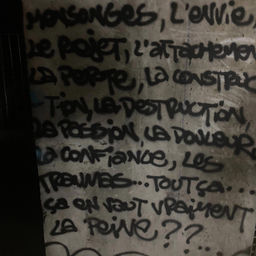 MENSONGES, L'ENVIE,
LE REJET, L'ATTACHEMEN
LA PERTE, LA CONSTRUC
TION, LA DESTRUCTION,
LA PASSION LA DOULEUR,
LA CONFIANCE, LES
TRAUMAS... TOUT ÇA...
ÇA EN VAUT VRAIMENT
LA PEINE ??